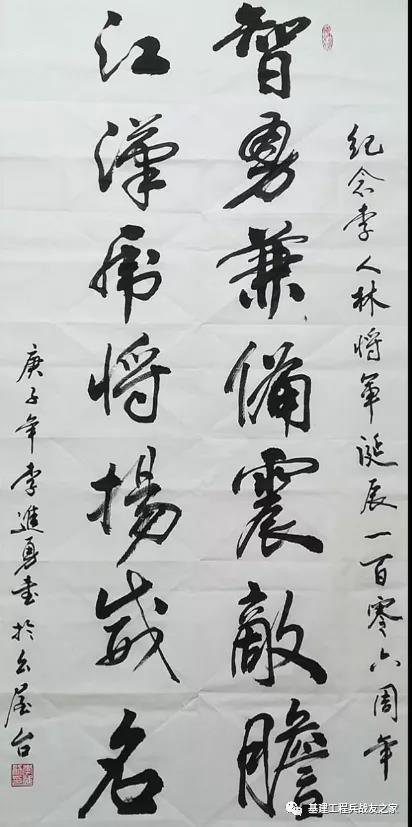 纪念李人林将军诞辰一百零六周年
智勇兼備震敵膽
江漢虎将揚威名
庚子年李進勇書於
基建工程兵战友之家